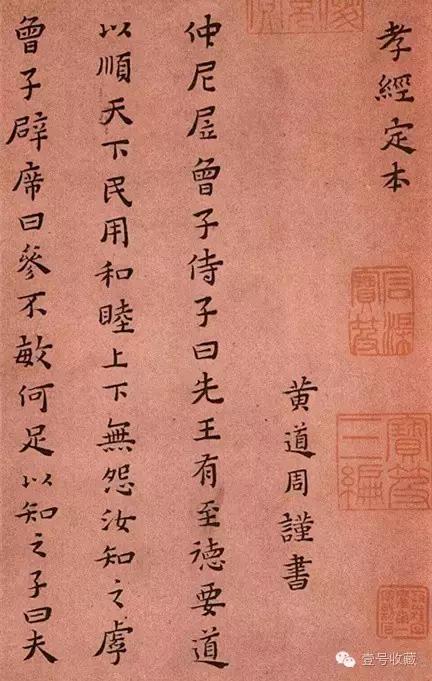 孝經定本
黄道周謹書
仲尼凥曾子侍子曰先王有至德要道
以順天下民用和睦上下無怨汝知之虖
曾子辟席曰參不敏何足以知之子曰夫
石渠寶笈
寶笈三編
壹号收藏